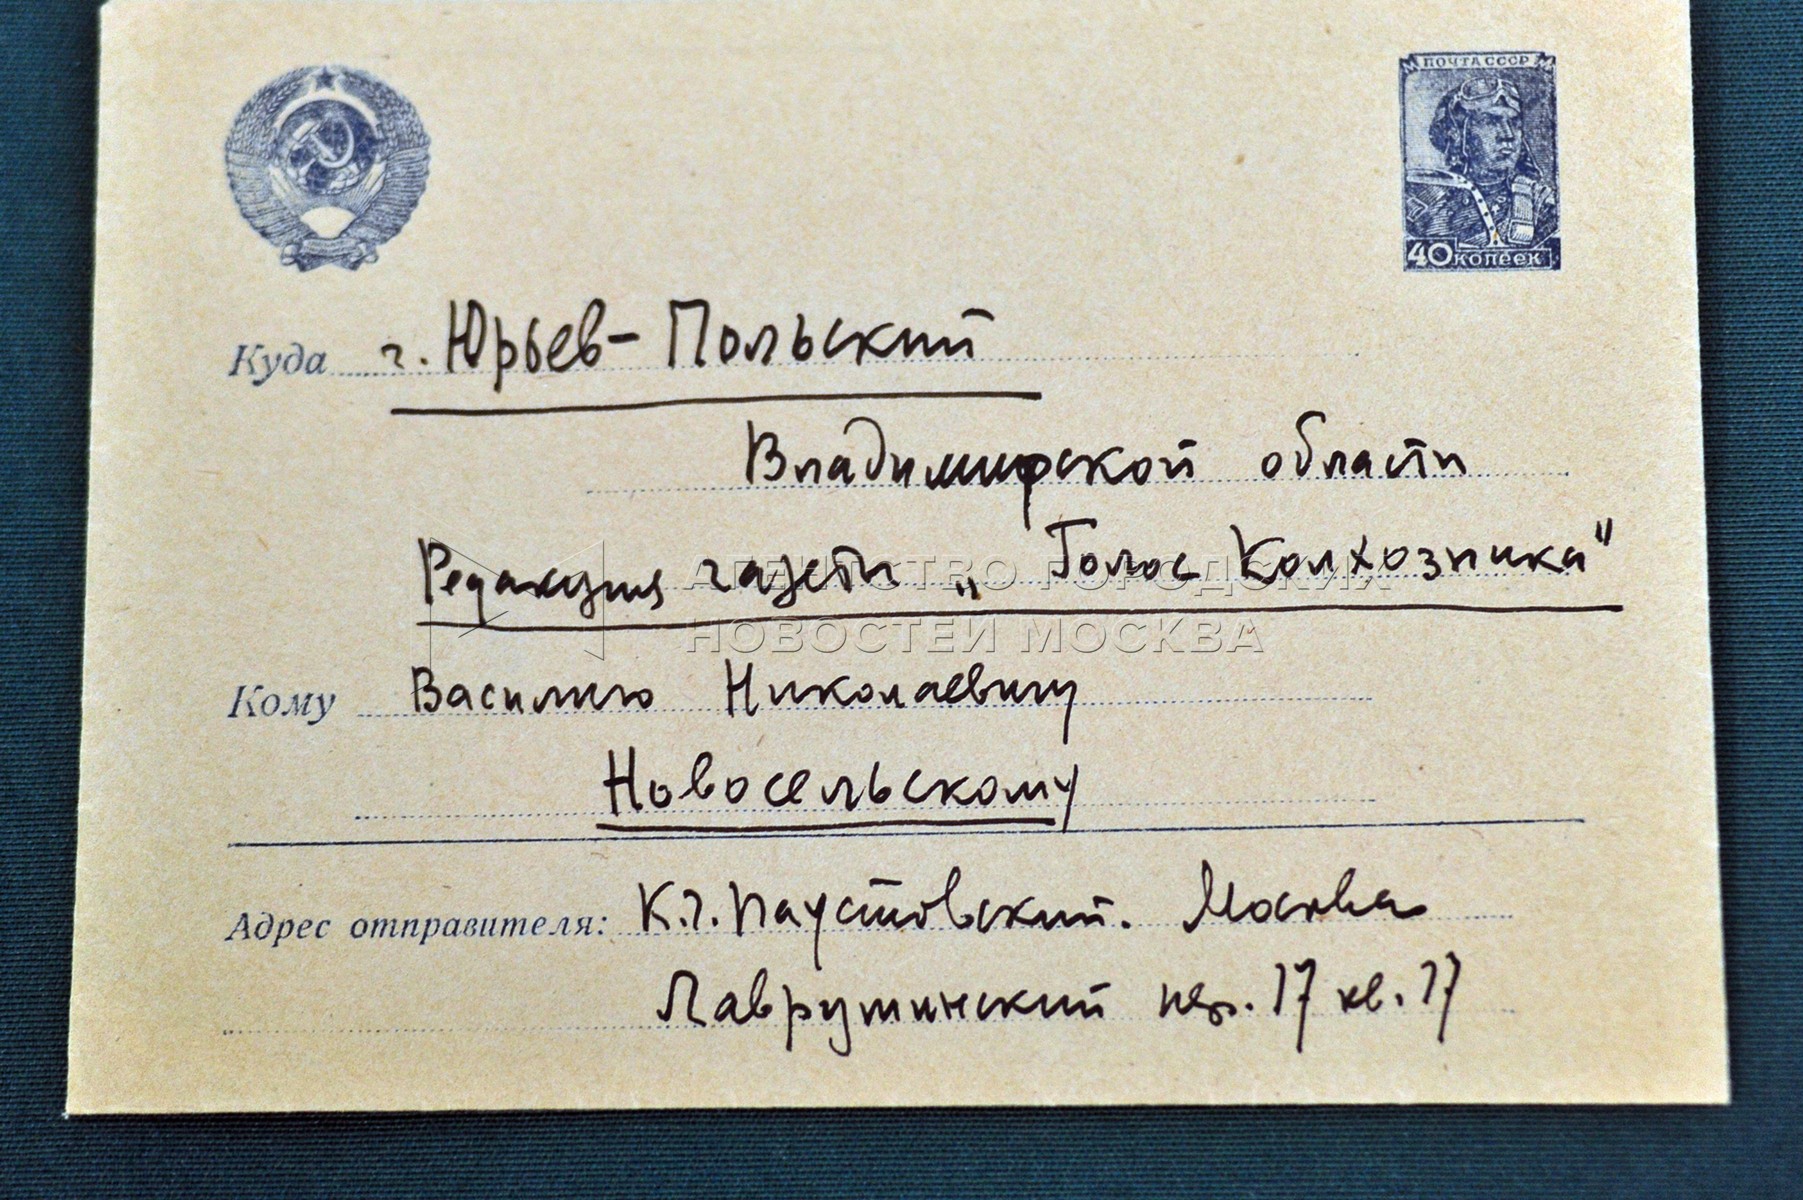 ПОЧТА СССР
40 копеек
Куда г. Юрьев-Польский
Владимирской области
Редакция газеты „Голос Колхозника"
АГЕНТСТВО ГОРОДСКИХ
НОВОСТЕЙ МОСКВА
Кому Василию Николаевичу
Новосельскому
Адрес отправителя: К.Г. Паустовский. Москва
Лаврушинский пер. 17 кв. 17